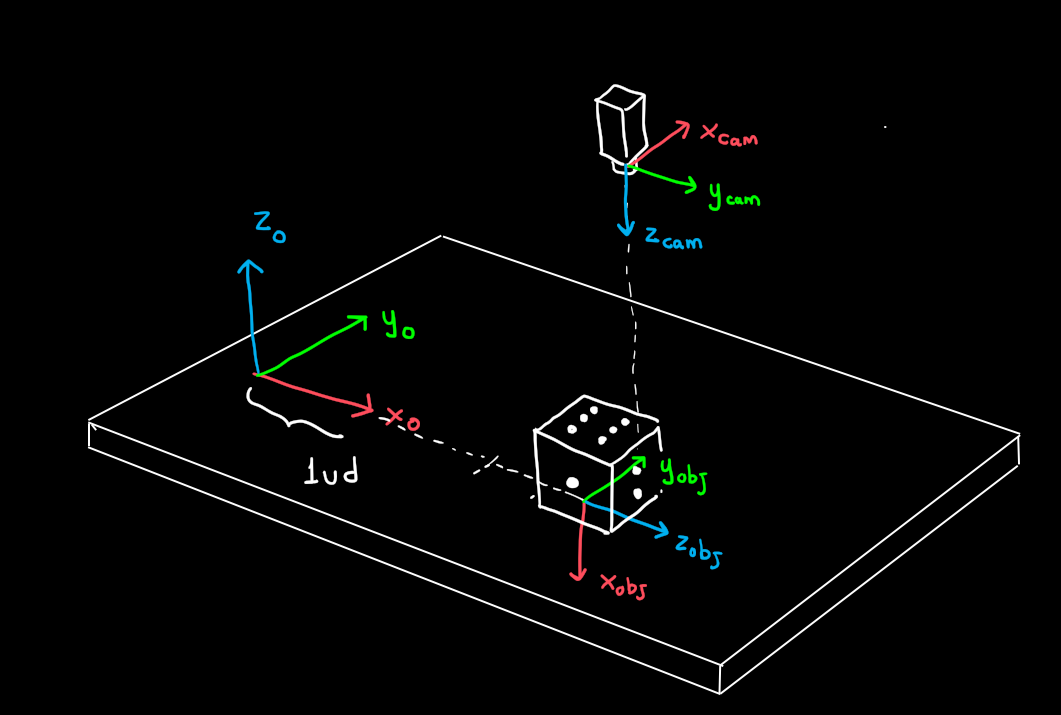 x cam
y cam
z cam
z0
y0
x0
1ud
y obj
z obj
x obj